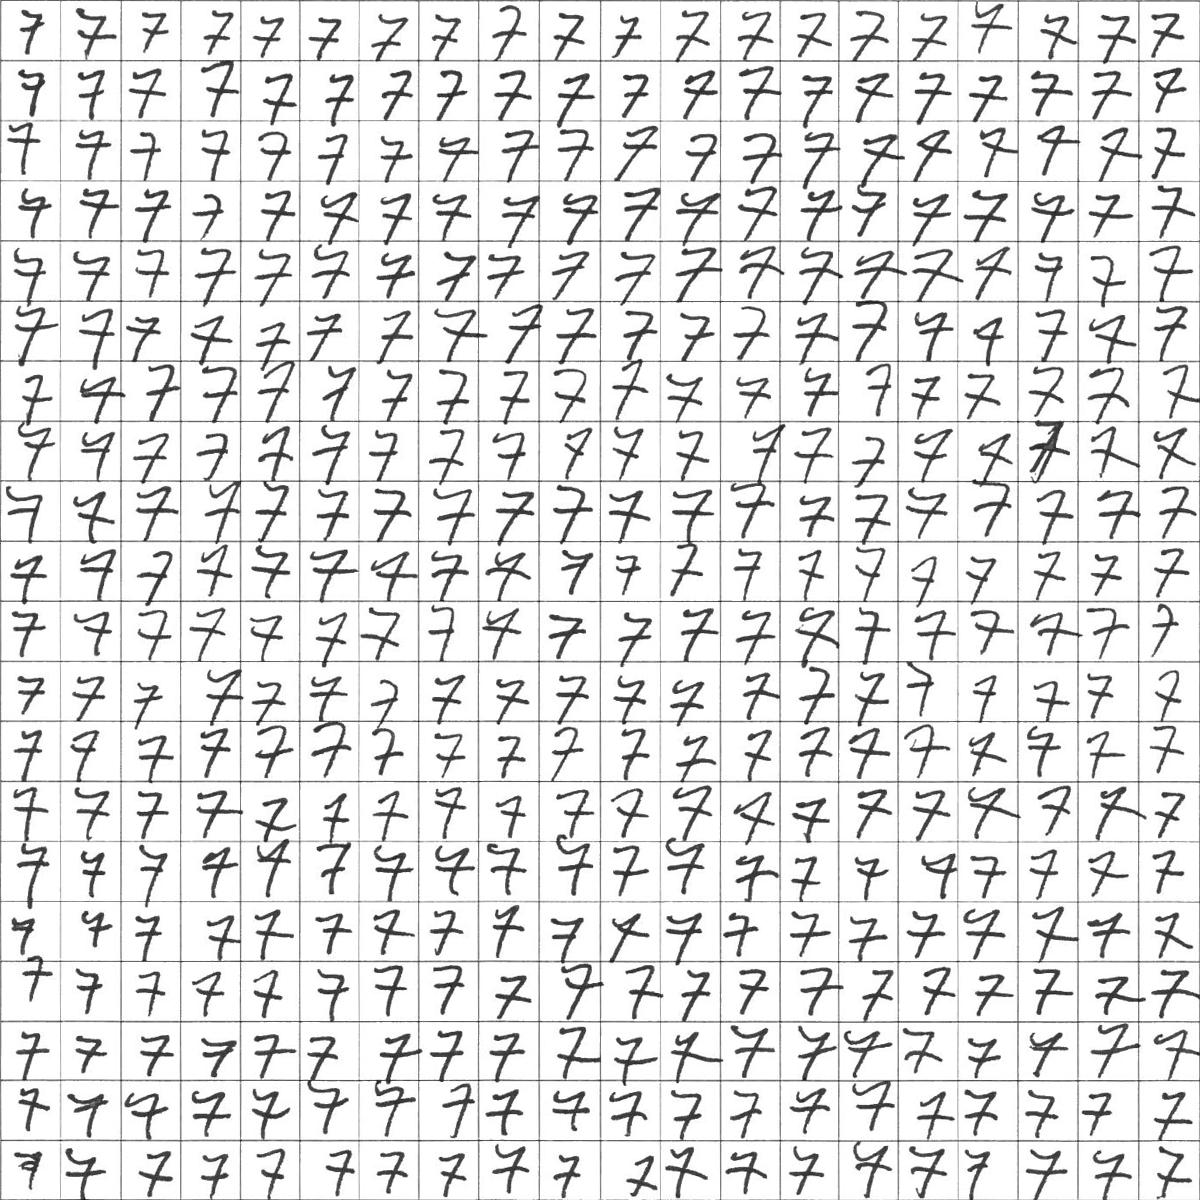 7 7 7 7 7 7 7 7 7 7 7 7 7 7 7 7 7 7 7 7
7 7 7 7 7 7 7 7 7 7 7 7 7 7 7 7 7 7 7 7
7 7 7 7 7 7 7 7 7 7 7 7 7 7 7 7 7 7 7 7
7 7 7 7 7 7 7 7 7 7 7 7 7 7 7 7 7 7 7 7
7 7 7 7 7 7 7 7 7 7 7 7 7 7 7 7 7 7 7 7
7 7 7 7 7 7 7 7 7 7 7 7 7 7 7 7 7 7 7 7
7 7 7 7 7 7 7 7 7 7 7 7 7 7 7 7 7 7 7 7
7 7 7 7 7 7 7 7 7 7 7 7 7 7 7 7 7 7 7 7
7 7 7 7 7 7 7 7 7 7 7 7 7 7 7 7 7 7 7 7
7 7 7 7 7 7 7 7 7 7 7 7 7 7 7 7 7 7 7 7
7 7 7 7 7 7 7 7 7 7 7 7 7 7 7 7 7 7 7 7
7 7 7 7 7 7 7 7 7 7 7 7 7 7 7 7 7 7 7 7
7 7 7 7 7 7 7 7 7 7 7 7 7 7 7 7 7 7 7 7
7 7 7 7 7 7 7 7 7 7 7 7 7 7 7 7 7 7 7 7
7 7 7 7 7 7 7 7 7 7 7 7 7 7 7 7 7 7 7 7
7 7 7 7 7 7 7 7 7 7 7 7 7 7 7 7 7 7 7 7
7 7 7 7 7 7 7 7 7 7 7 7 7 7 7 7 7 7 7 7
7 7 7 7 7 7 7 7 7 7 7 7 7 7 7 7 7 7 7 7
7 7 7 7 7 7 7 7 7 7 7 7 7 7 7 7 7 7 7 7
7 7 7 7 7 7 7 7 7 7 7 7 7 7 7 7 7 7 7 7